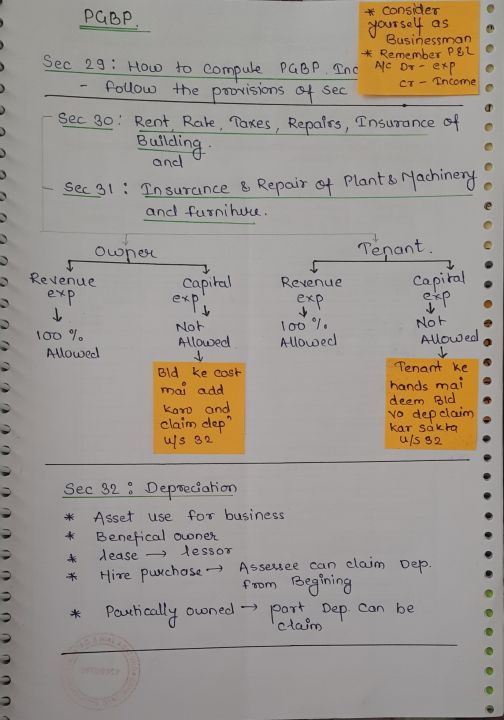 PGBP.
* Consider
yourself as
Businessman
* Remember P&L
A/c Dr - exp
cr - Income
Sec 29: How to compute PGBP. Inc
- follow the provisions of sec
Sec 30: Rent, Rate, Taxes, Repairs, Insurance of
Building.
and
Sec 31: Insurance & Repair of Plant & Machinery
and furniture.
Owner
Tenant.
Revenue exp
Capital exp
Revenue exp
Capital exp
100% Allowed
Not Allowed
100% Allowed
Not Allowed
Bld ke cost
mai add
karo and
claim depⁿ
u/s 32
Tenant ke
hands mai
deem Bld
vo dep claim
kar sakta
u/s 32
Sec 32: Depreciation
* Asset use for business
* Benefical owner
* lease → lessor
* Hire purchase → Assersee can claim Dep.
from Begining
* Partically owned → part Dep. can be
claim